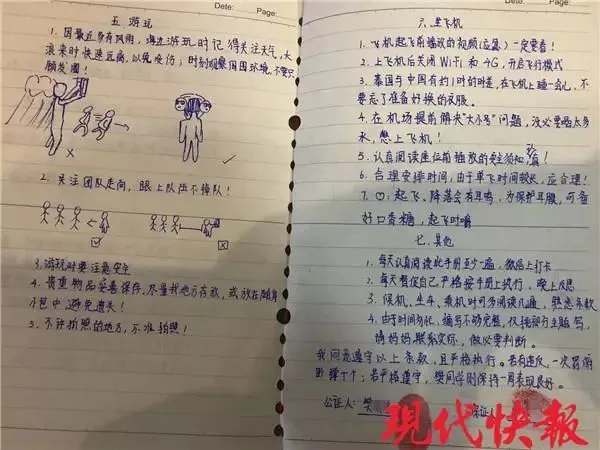 Dete: Page:
五 游玩
1. 因最近多有风雨，海边游玩时记得关注天气，大
浪来时快速远离，以免受伤；时刻观察周围环境，不要只
顾发圈！
×
✓
2. 关注团队走向，跟上队伍不掉队！
✓
×
3. 游玩时要注意安全
4. 贵重物品妥善保存，尽量找地方存放，或放在随身
小包中，避免遗失！
5. 不许拍照的地方，不准拍照！
Dete: Page:
六. 坐飞机
1. 飞机起飞前播放的视频(应急)一定要看！
2. 上飞机后关闭WiFi和4G，开启飞行模式
3. 泰国与中国有约1时的时差，在飞机上睡一会儿，不
要忘了准备好换的衣服。
4. 在机场提前解决"大小号"问题，没必要喝太多
水，憋上飞机！
5. 认真阅读座位前抽放的安全须知，认真！
6. 合理安排时间，由于坐飞时间较长，应合理！
7. 起飞、降落会有耳鸣，为保护耳膜，可备
好口香糖，起飞时嚼
七. 其他
1. 每天认真阅读此手册至少一遍，微信上打卡
2. 每天督促自己严格按手册上执行，晚上反思
3. 候机、坐车、乘机时可多阅读几遍，熟悉条款
4. 由于时间匆忙，编写不够完整，仅我部分主贴写，
请妈妈联系实际，做必要判断。
我同意遵守以上条款，且严格执行。若有违反，一次罚俯
卧撑十个；若严格遵守，樊同学则保持一周表现良好。
公证人：樊 保证人
現代快報